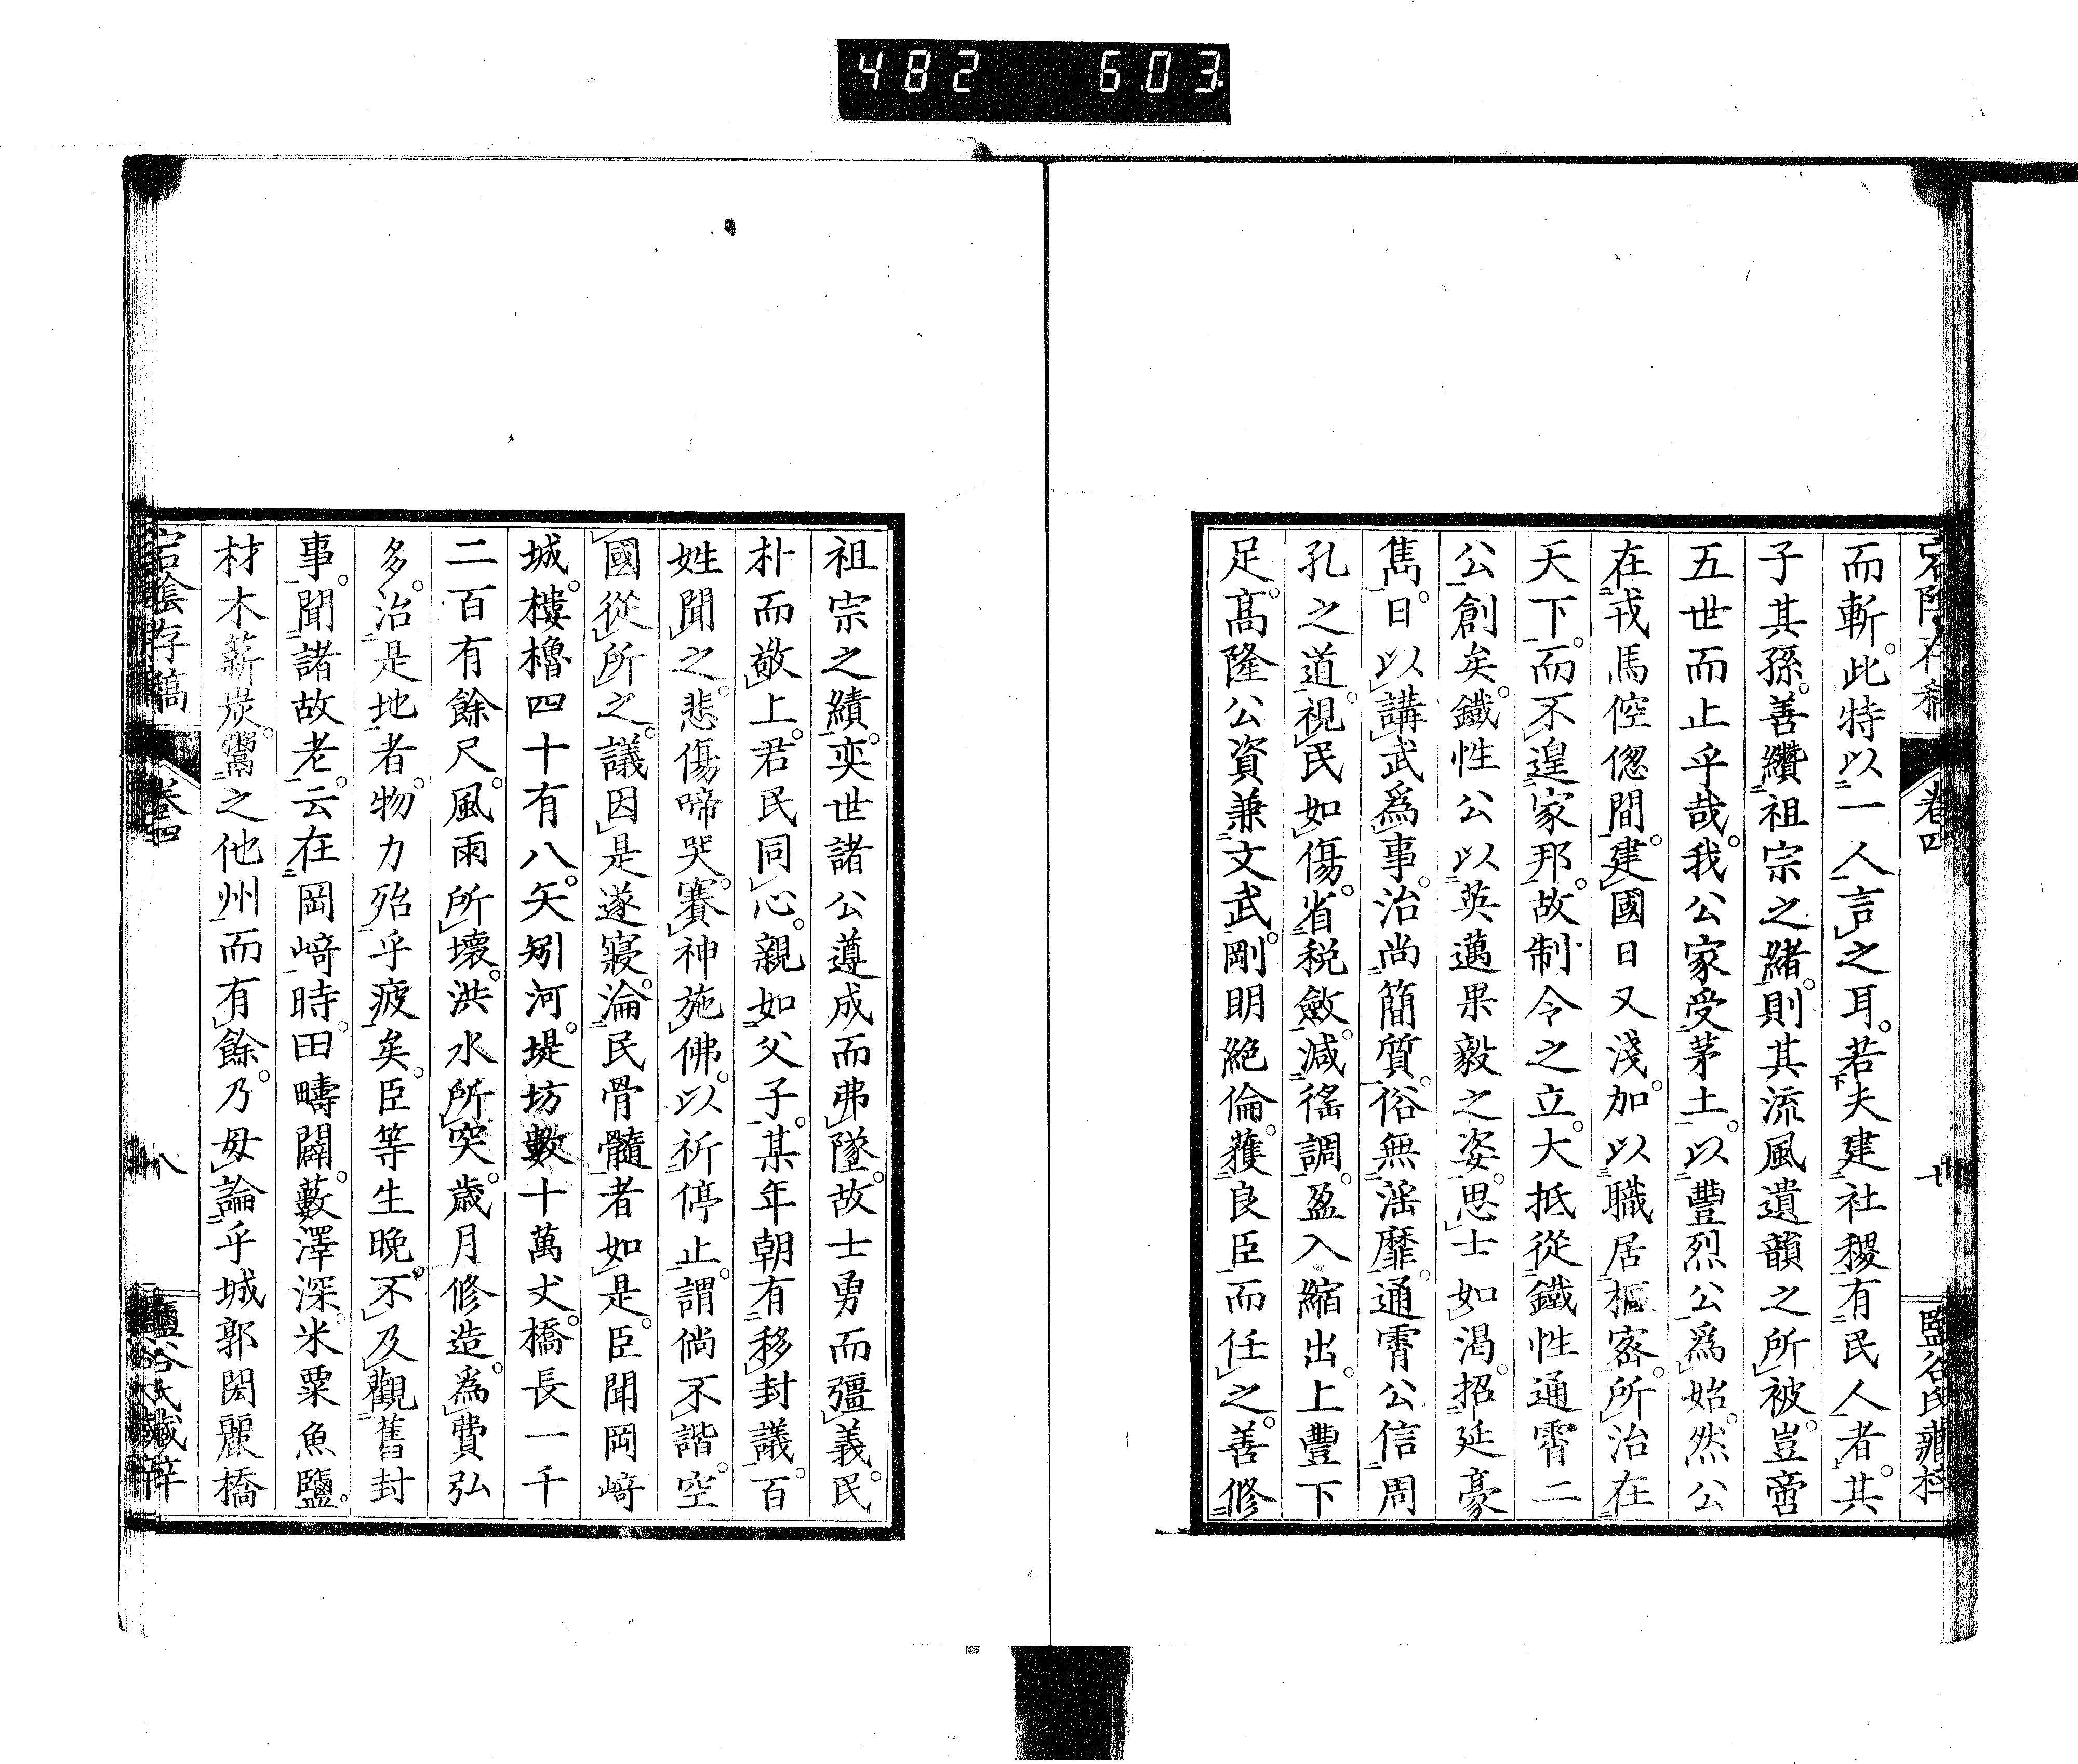 482 603.
卷四
而斬。此特以一人言之耳。若夫建社稷有民人者。其
子其孫。善纘祖宗之緒。則其流風遺韻之所被。豈啻
五世而止乎哉。我公家受茅土。以豐烈公爲始。然公
在戎馬倥偬間。建國日又淺。加以職居樞密。所治在
天下。而不遑家邦。故制令之立。大抵從鐵性通霄二
公創矣。鐵性公以英邁果毅之姿。思士如渴。招延豪
雋。日以講武爲事。治尚簡質。俗無滛靡。通霄公信周
孔之道。視民如傷。省税斂。減徭調。盈入縮出。上豐下
足。髙隆公資兼文武。剛明絶倫。蓷良臣而任之。善修
祖宗之績。奕世諸公遵成而弗墜。故士勇而彊義。民
朴而敬上。君民同心。親如父子。某年朝有移封議。百
姓聞之。悲傷啼哭。賽神施佛。以祈停止。謂倘不諧。空
國從所之。議因是遂寢。淪民骨髓者如是。臣聞岡﨑
城。樓櫓四十有八。矢矧河。堤坊數十萬丈。橋長一千
二百有餘尺。風雨所壞。洪水所突。歳月修造。爲費弘
多。治是地者。物力殆乎疲矣。臣等生晩。不及觀舊封
事。聞諸故老。云在岡﨑時。田疇闢。藪澤深。米粟魚鹽。
材木薪炭。鬻之他州而有餘。乃毋論乎城郭閎麗橋
宕陰存稿 卷四 八